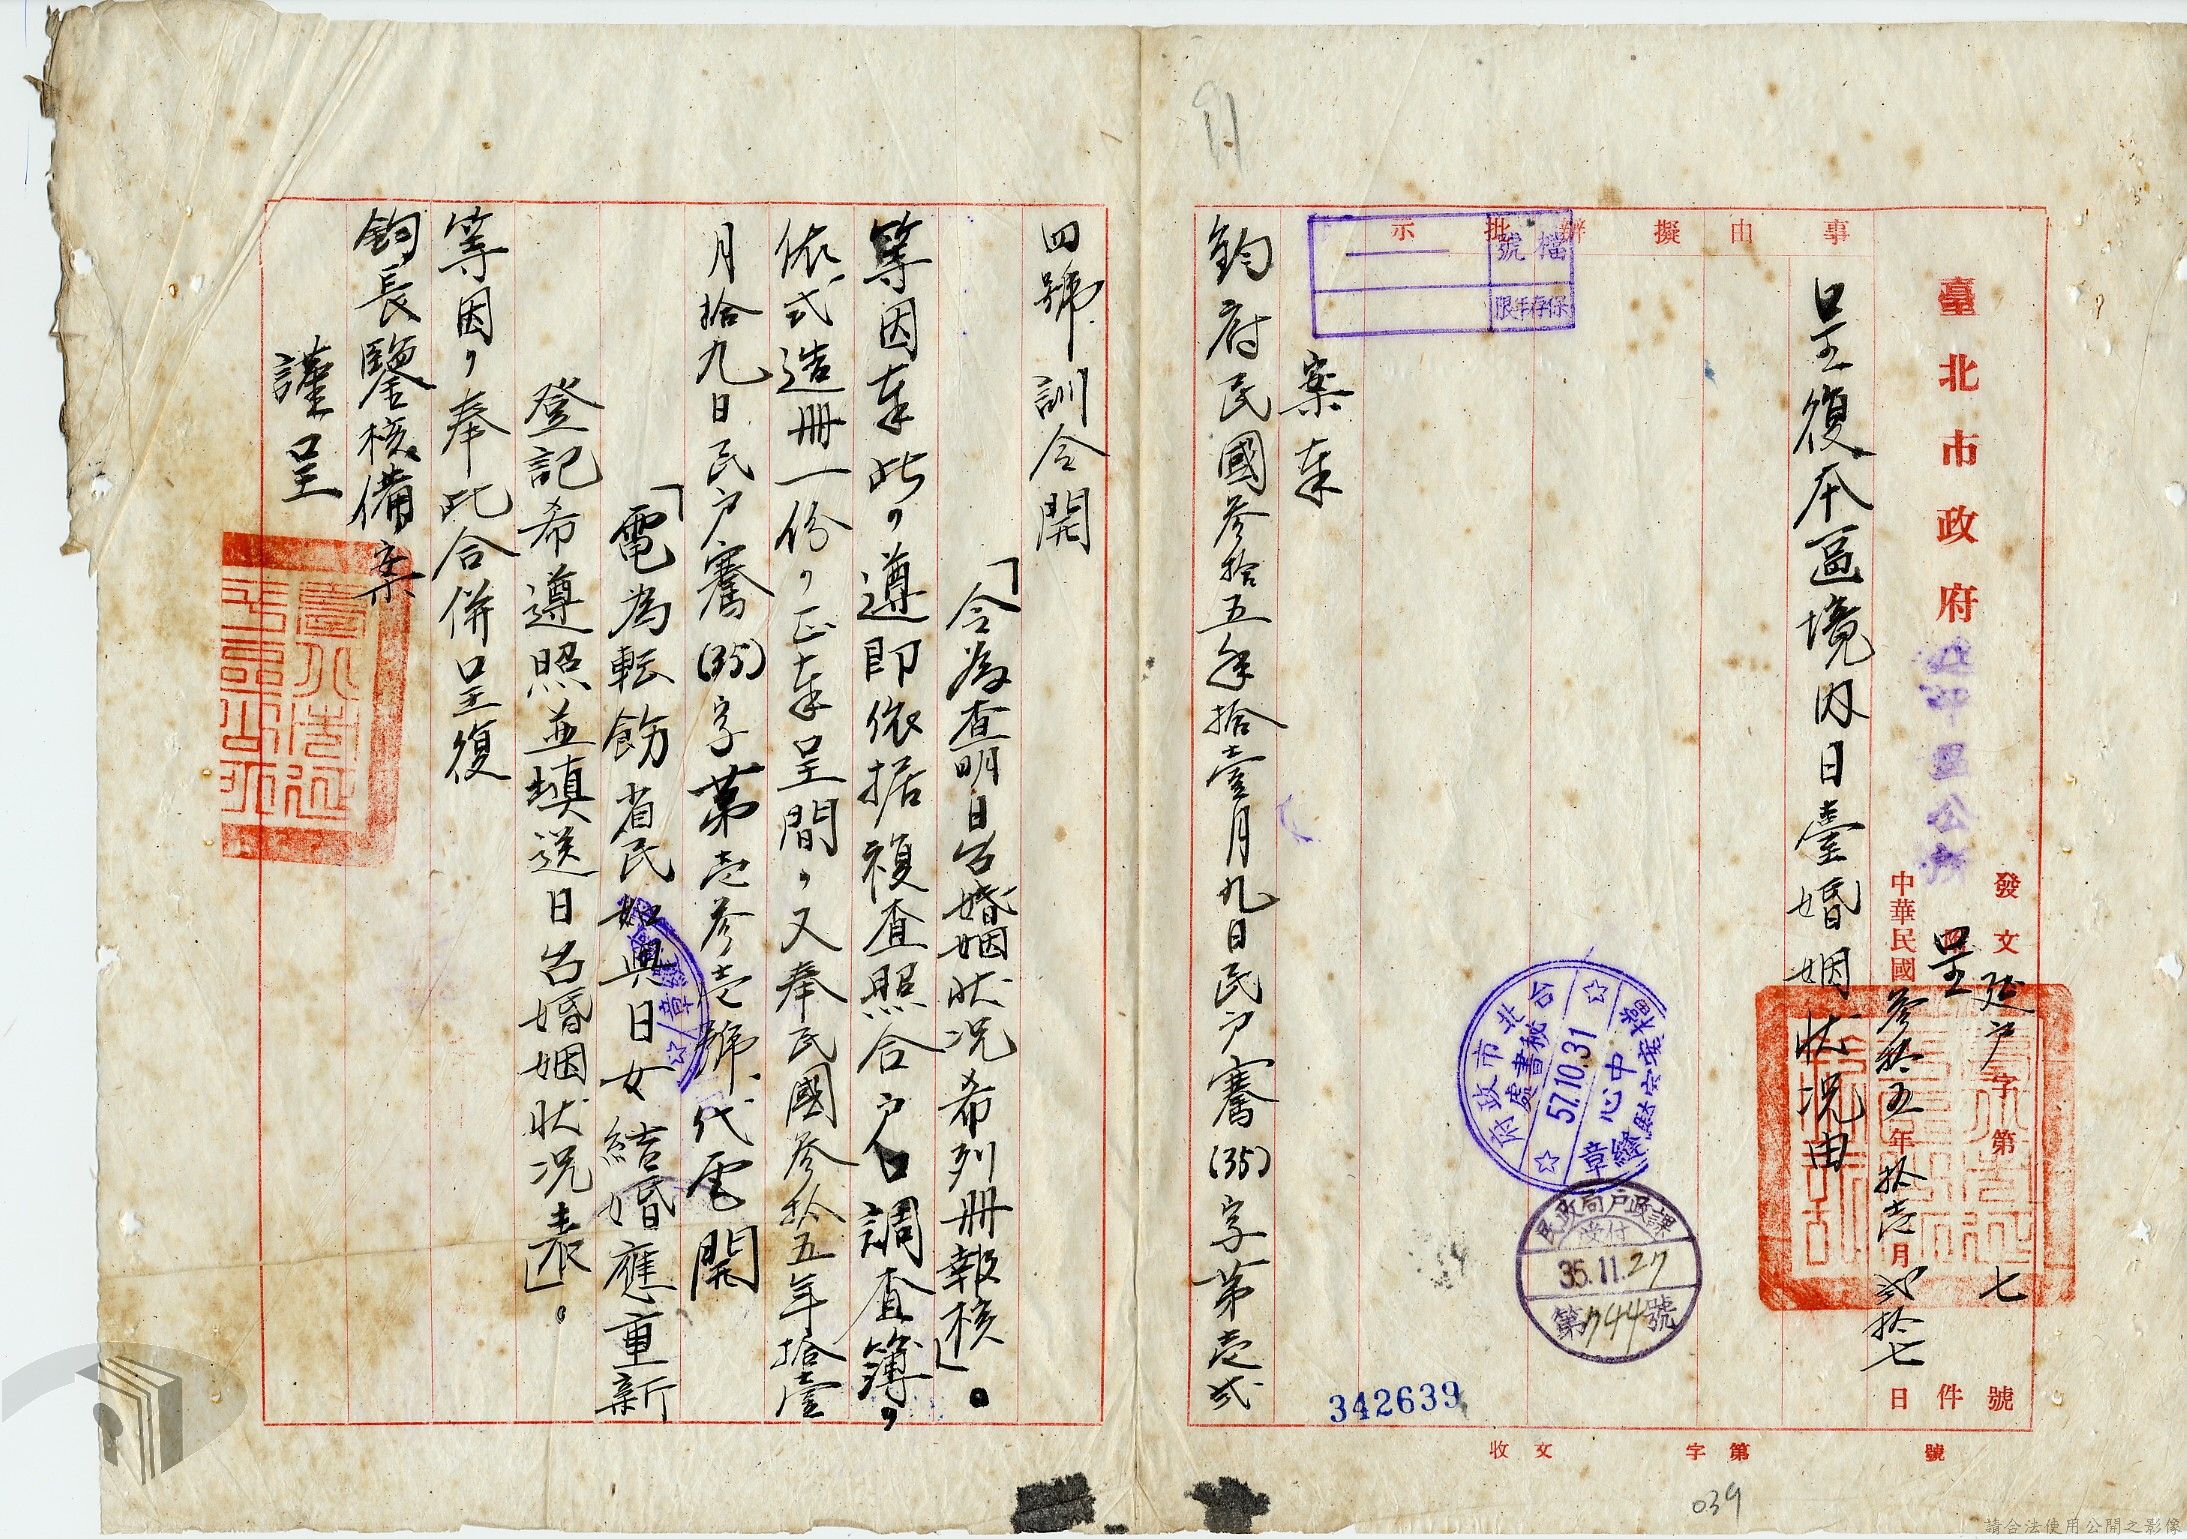 臺北市政府延平區公所
發文延戶字第七號
呈附件
中華民國參拾五年拾壹月貳拾七日
事由擬辦批示
呈復本區境內日臺婚姻狀況由
檔號
保存年限
案奉
鈞府民國參拾五年拾壹月九日民戶騫(35)字第壱貳
四號訓令開
「令為查明日台婚姻狀况希列冊報核」。
等因奉此，遵即依据複查照合戶口調查簿，
依式造冊一份，正奉呈間，又奉民國參拾五年拾壹
月拾九日民戶騫(35)字第壱參壱號代電開
「電為転飭省民如與日女結婚應重新
登記希遵照並填送日台婚姻狀況表」。
等因，奉此合併呈復
鈞長鑒核備案
謹呈
台北市政府
秘書處
57.10.31
中心
檔案
章
民政局戶政課
受付
35.11.27
第744號
342639
收文字第號
039
請合法使用公開之影像